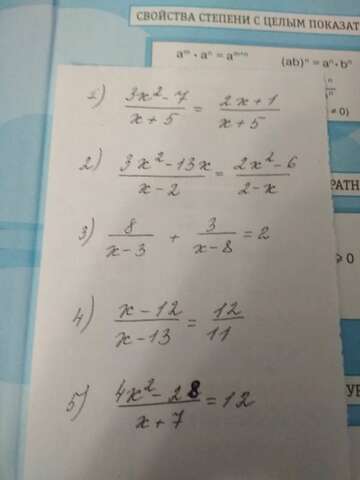 СВОЙСТВА СТЕПЕНИ С ЦЕЛЫМ ПОКАЗАТ
aᵐ · aⁿ = aᵐ⁺ⁿ
(ab)ⁿ = aⁿ · bⁿ
≠ 0)
1) (3x² - 7)/(x + 5) = (2x + 1)/(x + 5)
2) (3x² - 13x)/(x - 2) = (2x² - 6)/(2 - x)
3) 8/(x - 3) + 3/(x - 8) = 2
4) (x - 12)/(x - 13) = 12/11
5) (4x² - 28)/(x + 7) = 12